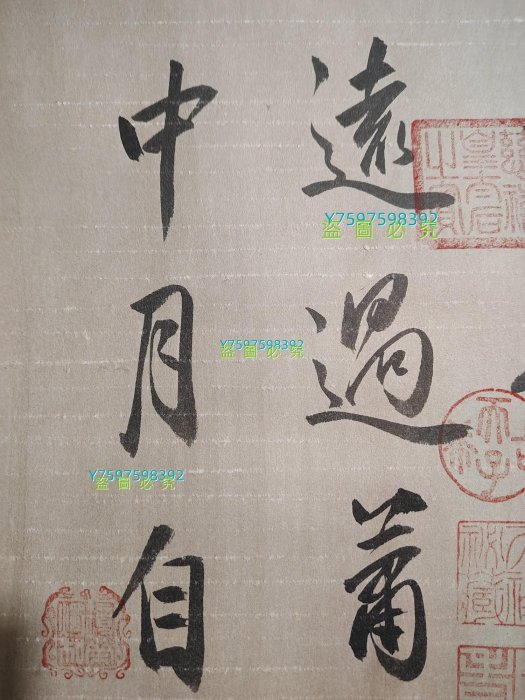 遠過蕭
中月自
Y7597598392
盗圖必究
Y7597598392
盗圖必究
Y7597598392
盗圖必究